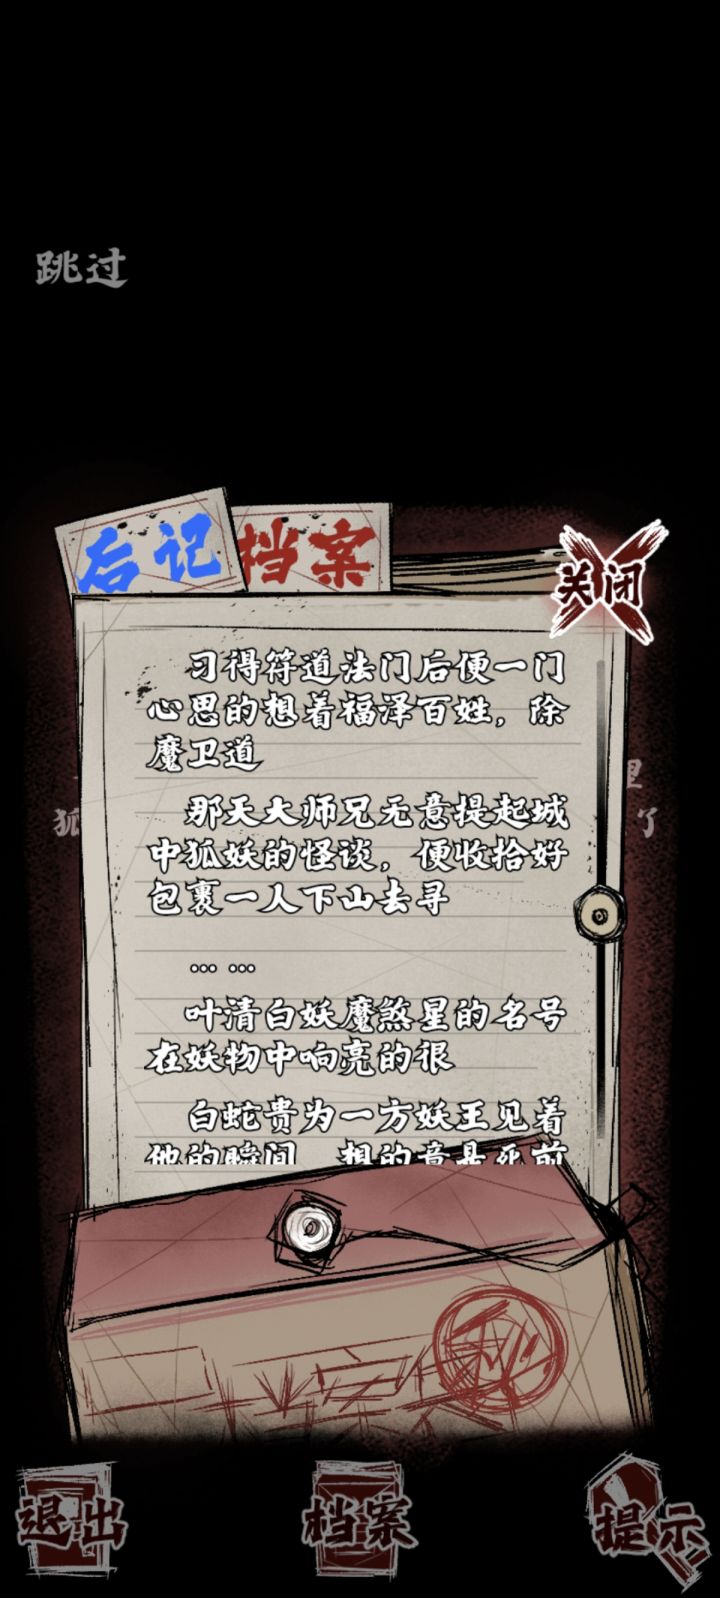 跳过
后记
档案
关闭
习得符道法门后便一门
心思的想着福泽百姓，除
魔卫道
那天大师兄无意提起城
中狐妖的怪谈，便收拾好
包裹一人下山去寻
... ...
叶清白妖魔煞星的名号
在妖物中响亮的很
白蛇贵为一方妖王见着
他的瞬间，想的竟是死前
狐
了
退出
档案
提示